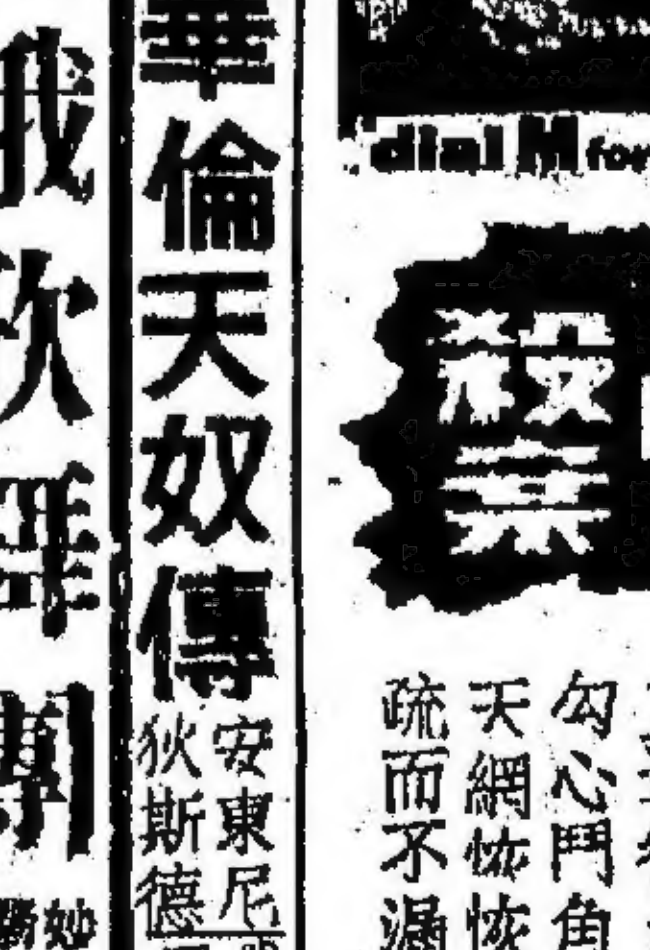 dial M for
殺案
勾心鬥角
天網恢恢
疏而不漏
華倫天奴傳
安東尼
狄斯德
妙